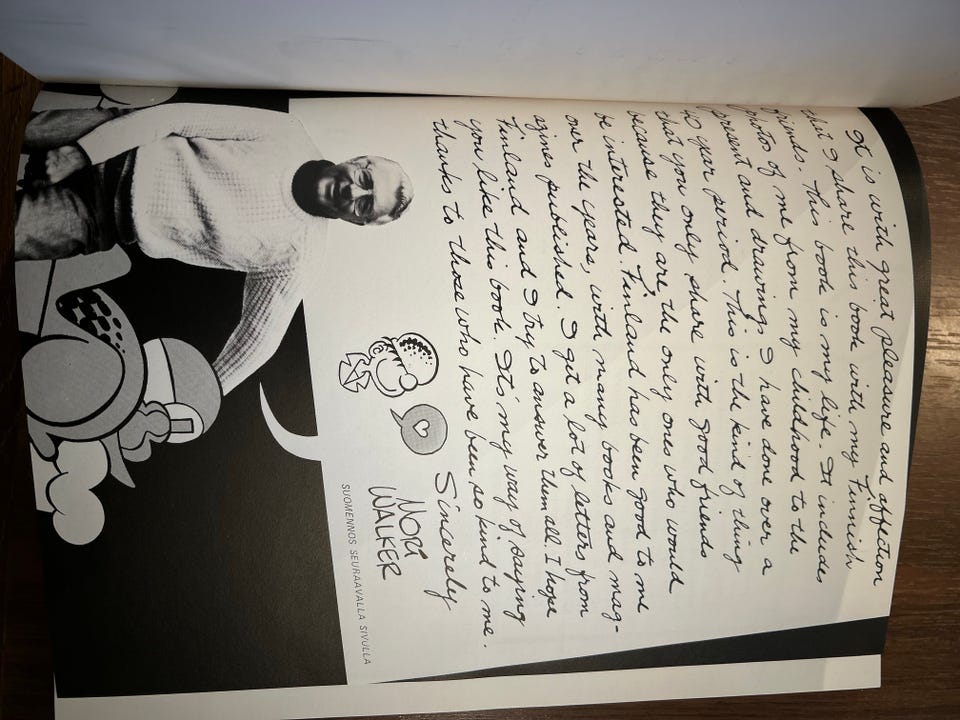 It is with great pleasure and affection
that I share this book with my Finnish
friends. This book is my life. It includes
photos of me from my childhood to the
present and drawings I have done over a
40 year period. This is the kind of thing
that you only share with good friends
because they are the only ones who would
be interested. Finland has been good to me
over the years, with many books and mag-
azines published. I get a lot of letters from
Finland and I try to answer them all. I hope
you like this book. It's my way of saying
thanks to those who have been so kind to me.
Sincerely
MORT
WALKER
SUOMENNOS SEURAAVALLA SIVULLA